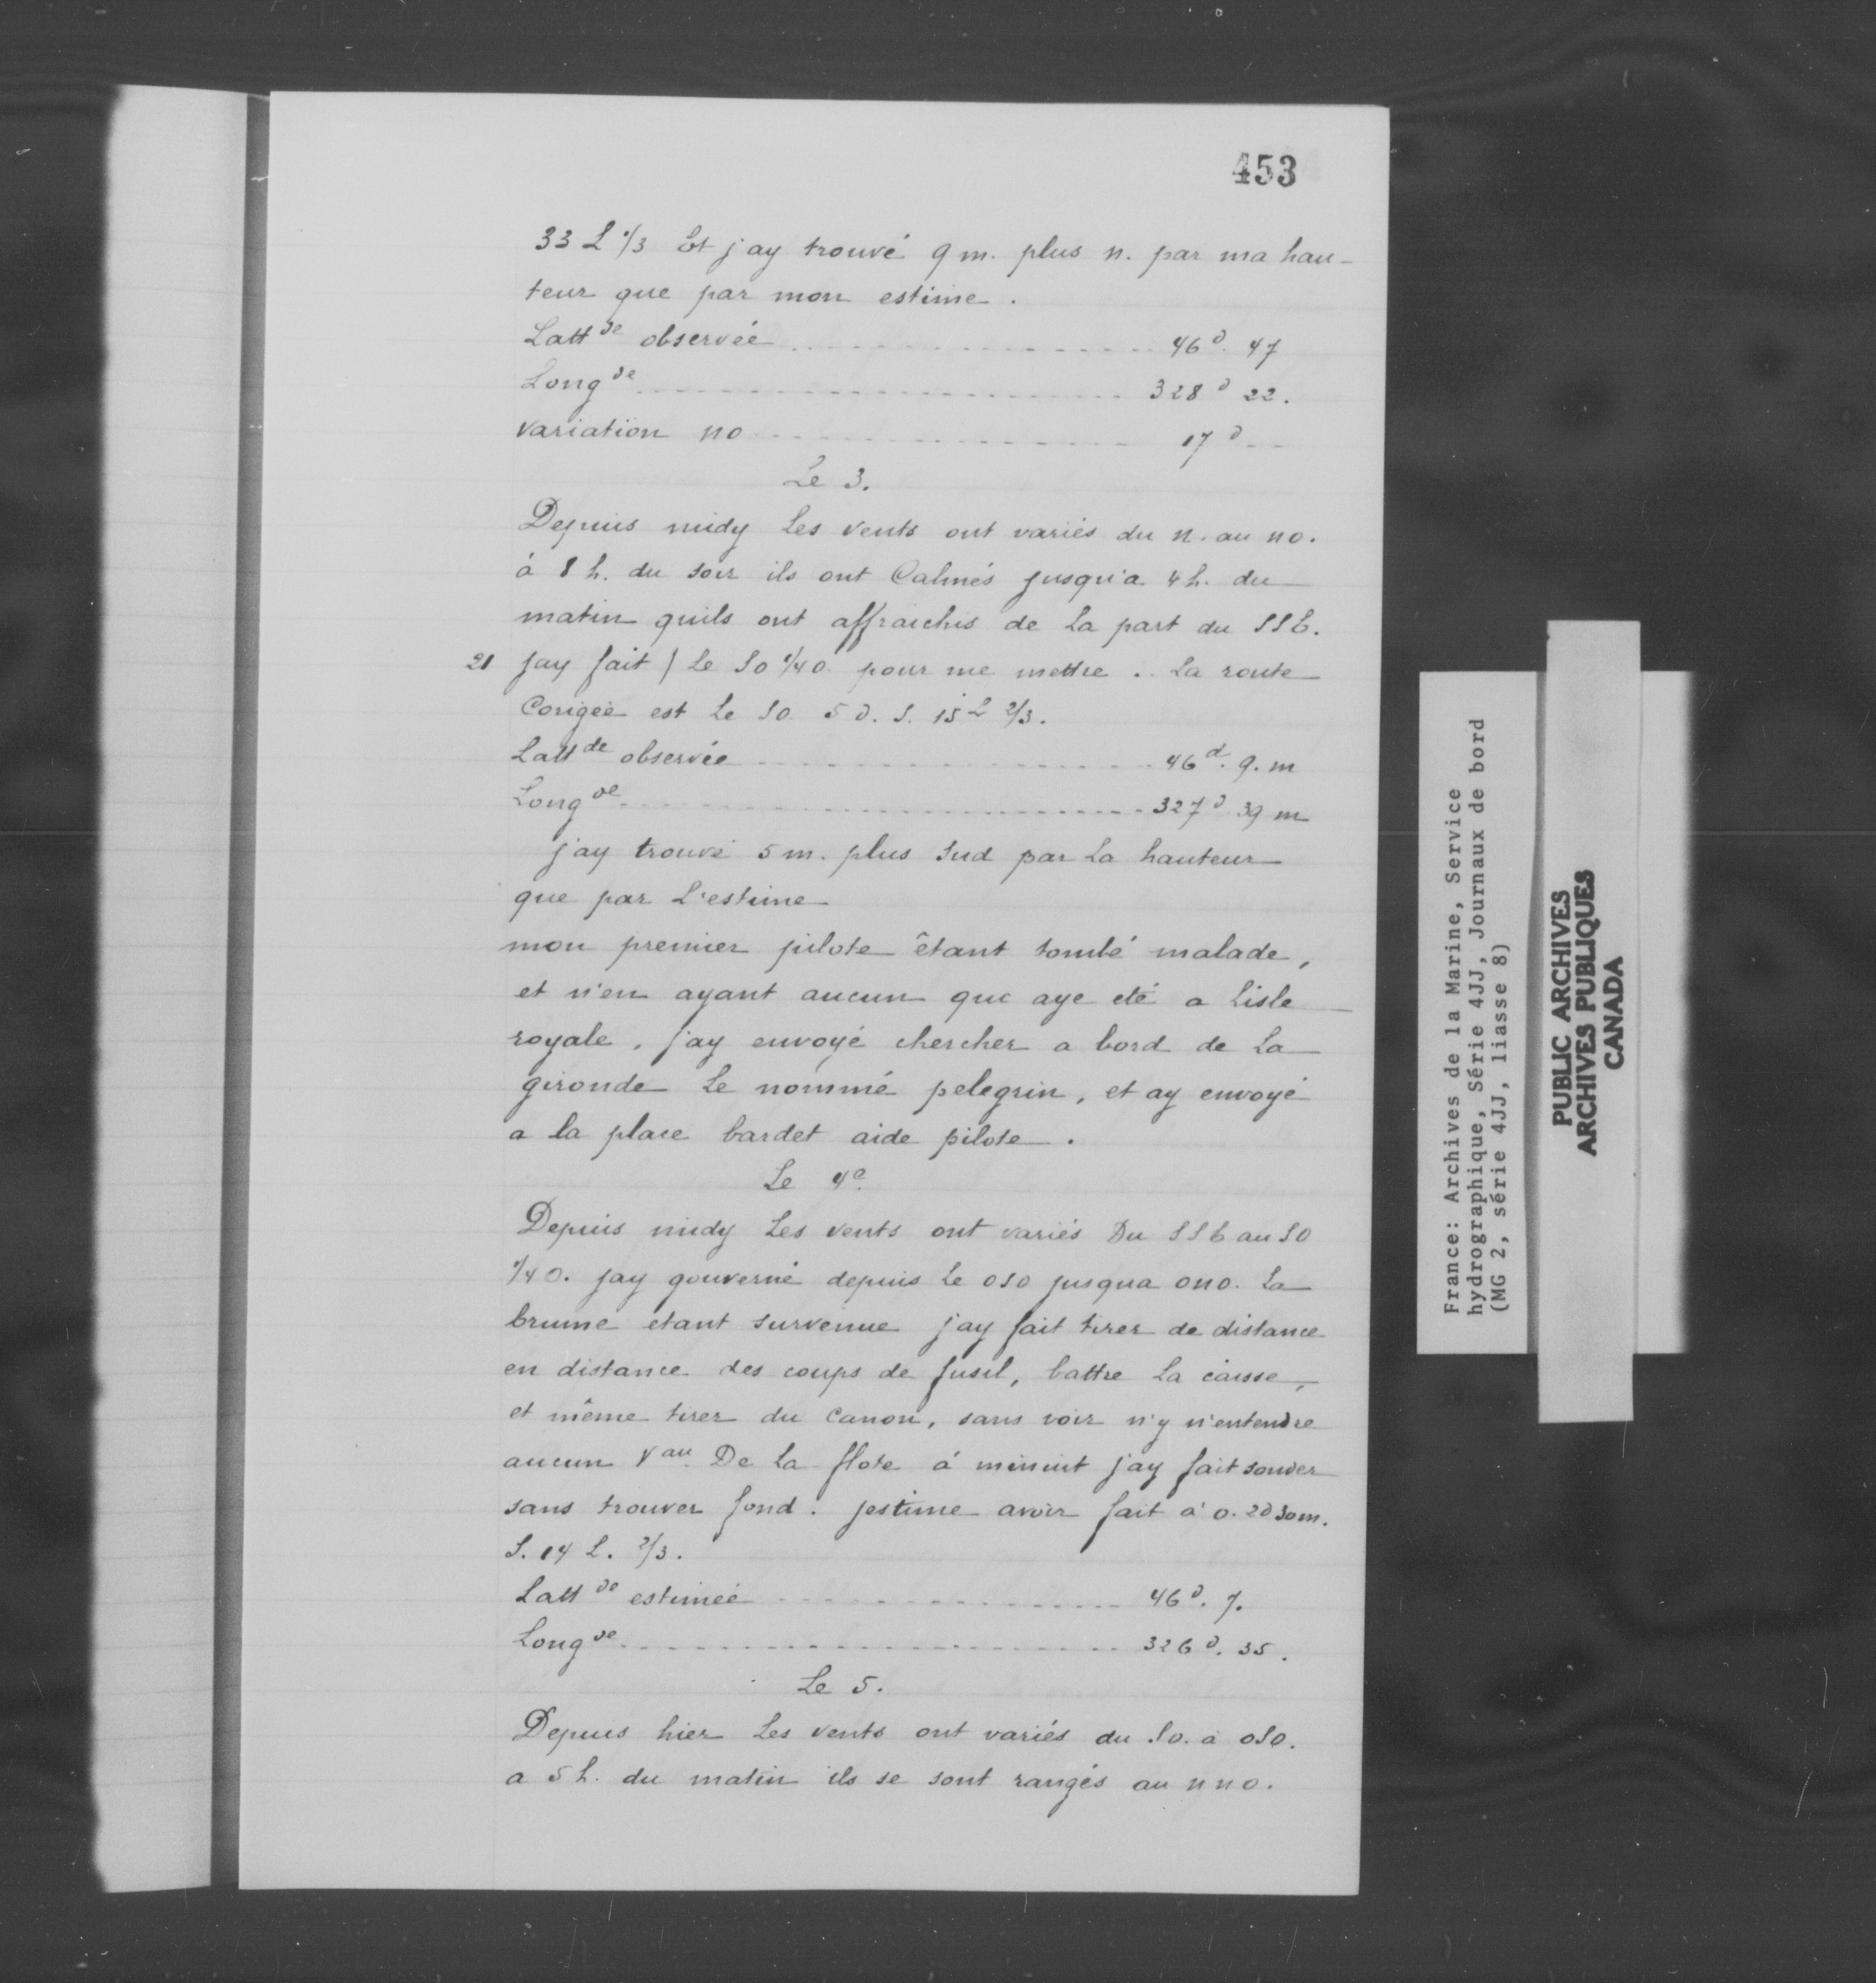 453
33 L 1/3 Et j'ay trouvé 9 m. plus n. par ma hau-
teur que par mon estime.
Lattde observée 46d. 47
Longde 328d 22.
variation no 17d
Le 3.
Depuis midy Les vents ont variés du n. au no.
à 8 h. du soir ils ont Calmés jusqu'a 4 h. du
matin quils ont affraichis de La part du SSE.
21 jay fait / Le SO 1/4 O. pour me mettre .. La route
Corigée est Le SO. 5 D. S. 15 L 2/3.
Lattde observée 46d. 9. m
Longde 327d 39 m
j'ay trouvé 5 m. plus Sud par La hauteur
que par L'estime
mon premier pilote êtant tombé malade,
et n'en ayant aucun que aye eté a Lisle
royale, j'ay envoyé chercher a bord de La
gironde Le nommé pelegrin, et ay envoyé
a la place bardet aide pilote.
Le 4e
Depuis midy Les vents ont variés Du SSE au SO
1/4 O. jay gouverné depuis Le OSO jusqua ono. La
brume etant survenue jay fait tirer de distance
en distance des coups de fusil, battre La caisse,
et même tirer du Canon, sans voir n'y n'entendre
aucun Vau De La flote á minuit j'ay fait sonder
sans trouver fond. jestime avoir fait a' o. 2d 30m.
S. 14 L. 2/3.
Lattde estimée 46d. 7.
Longde 326d. 35.
Le 5.
Depuis hier Les vents ont variés du So. a OSO.
a 5 h. du matin ils se sont rangés au nno.
France: Archives de la Marine, Service
hydrographique, Série 4JJ, Journaux de bord
(MG 2, série 4JJ, liasse 8)
PUBLIC ARCHIVES
ARCHIVES PUBLIQUES
CANADA